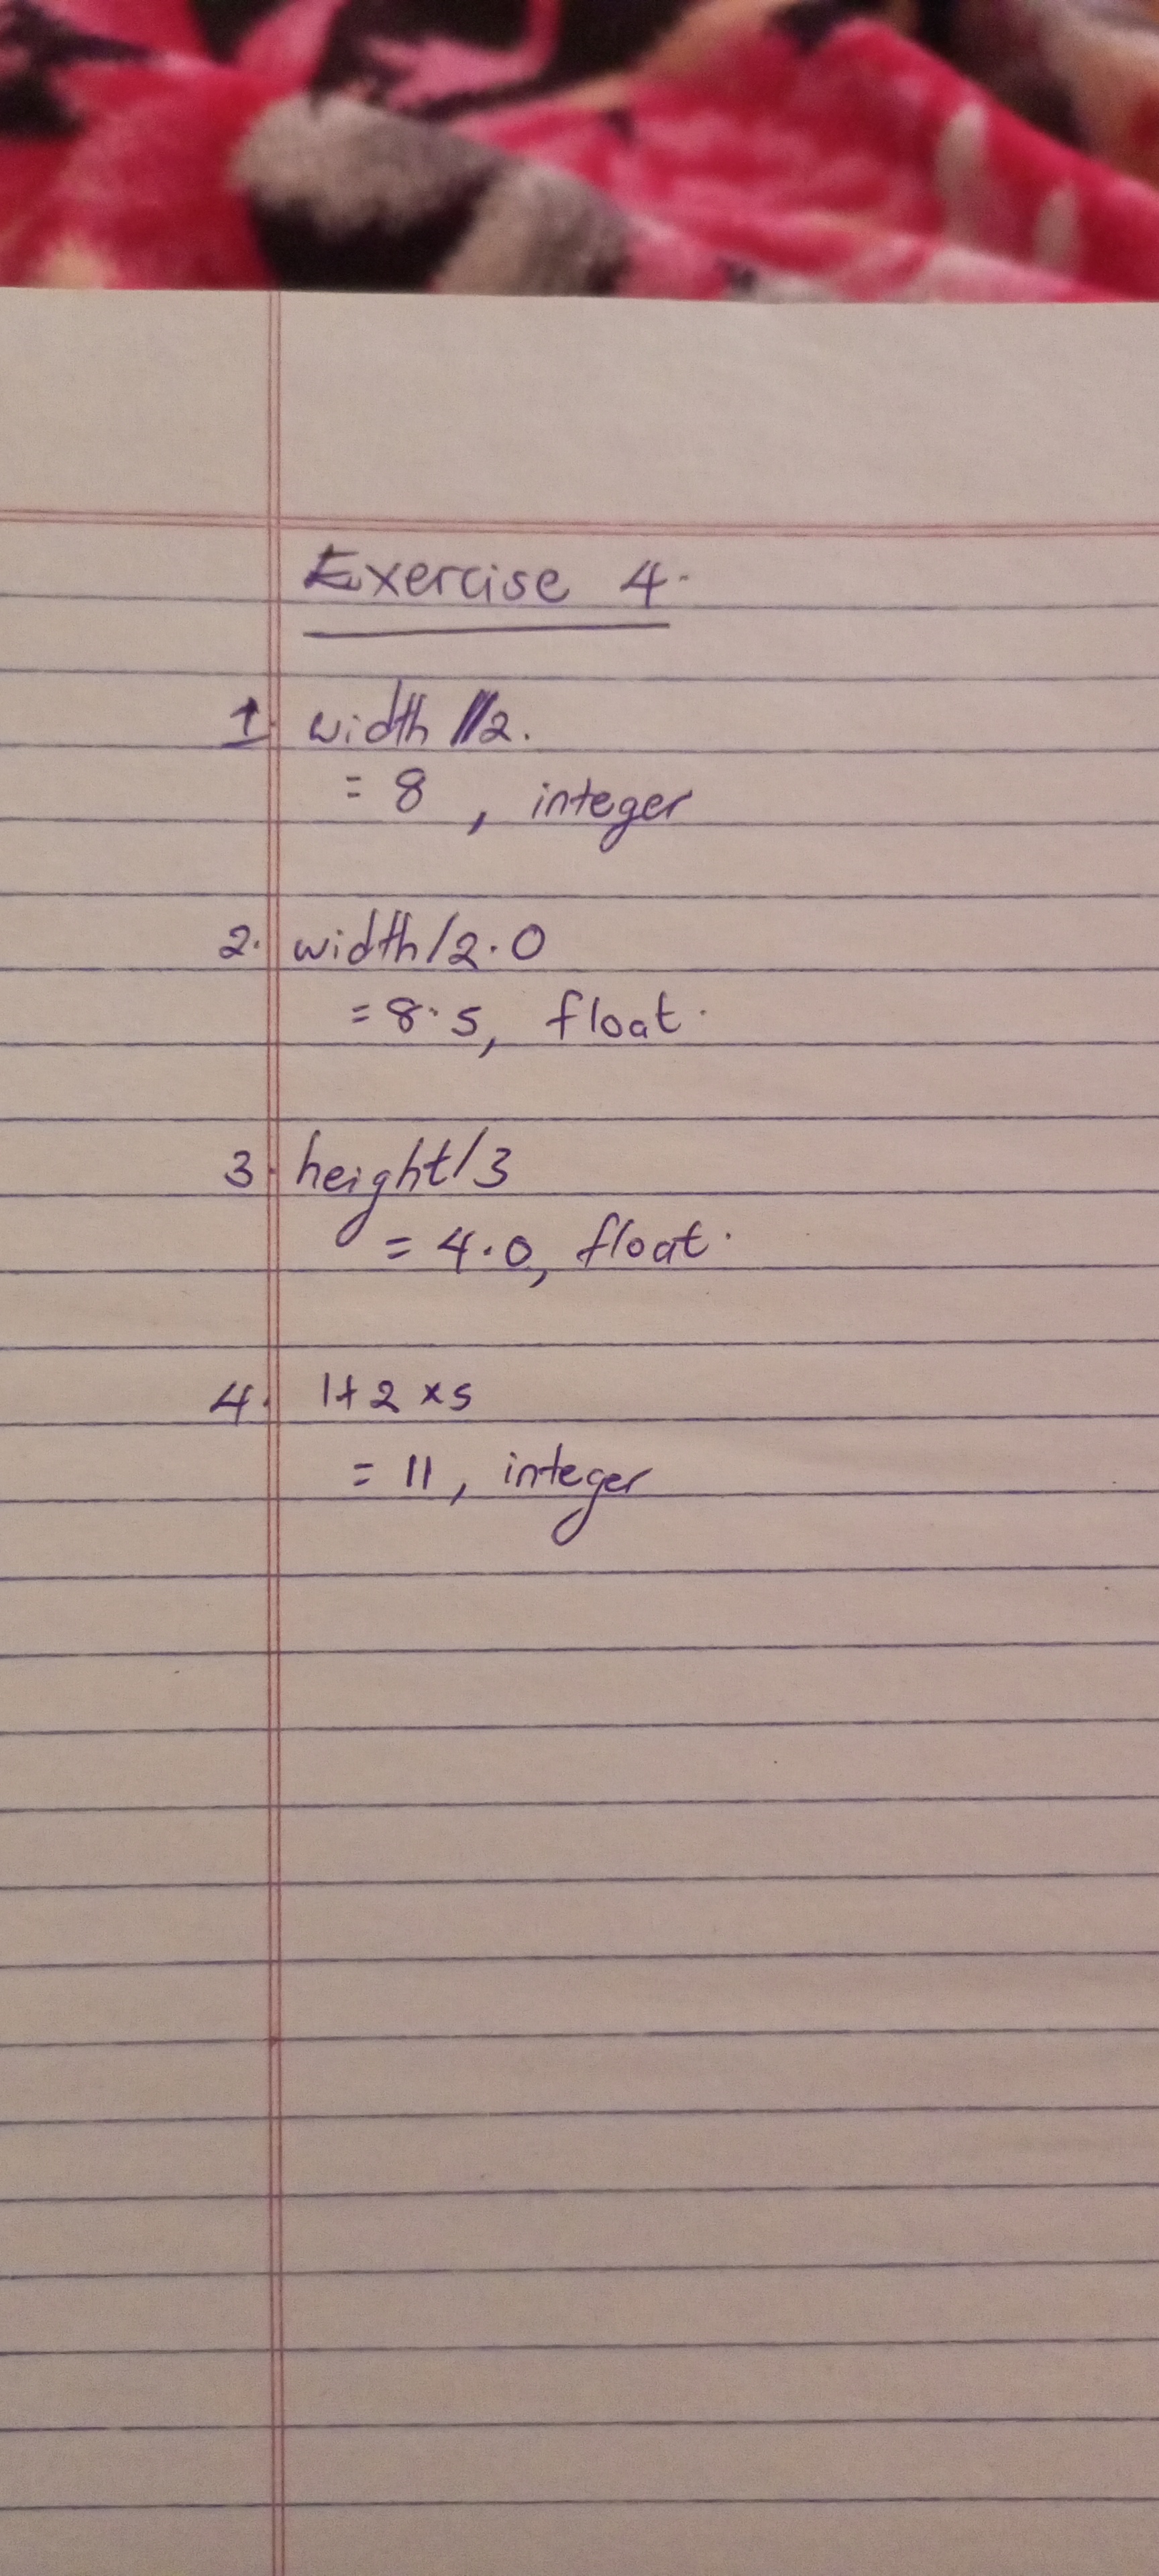 Exercise 4.
1. width //2.
= 8 , integer
2. width/2.0
= 8.5, float.
3. height/3
= 4.0, float.
4. 1+2 x5
= 11, integer